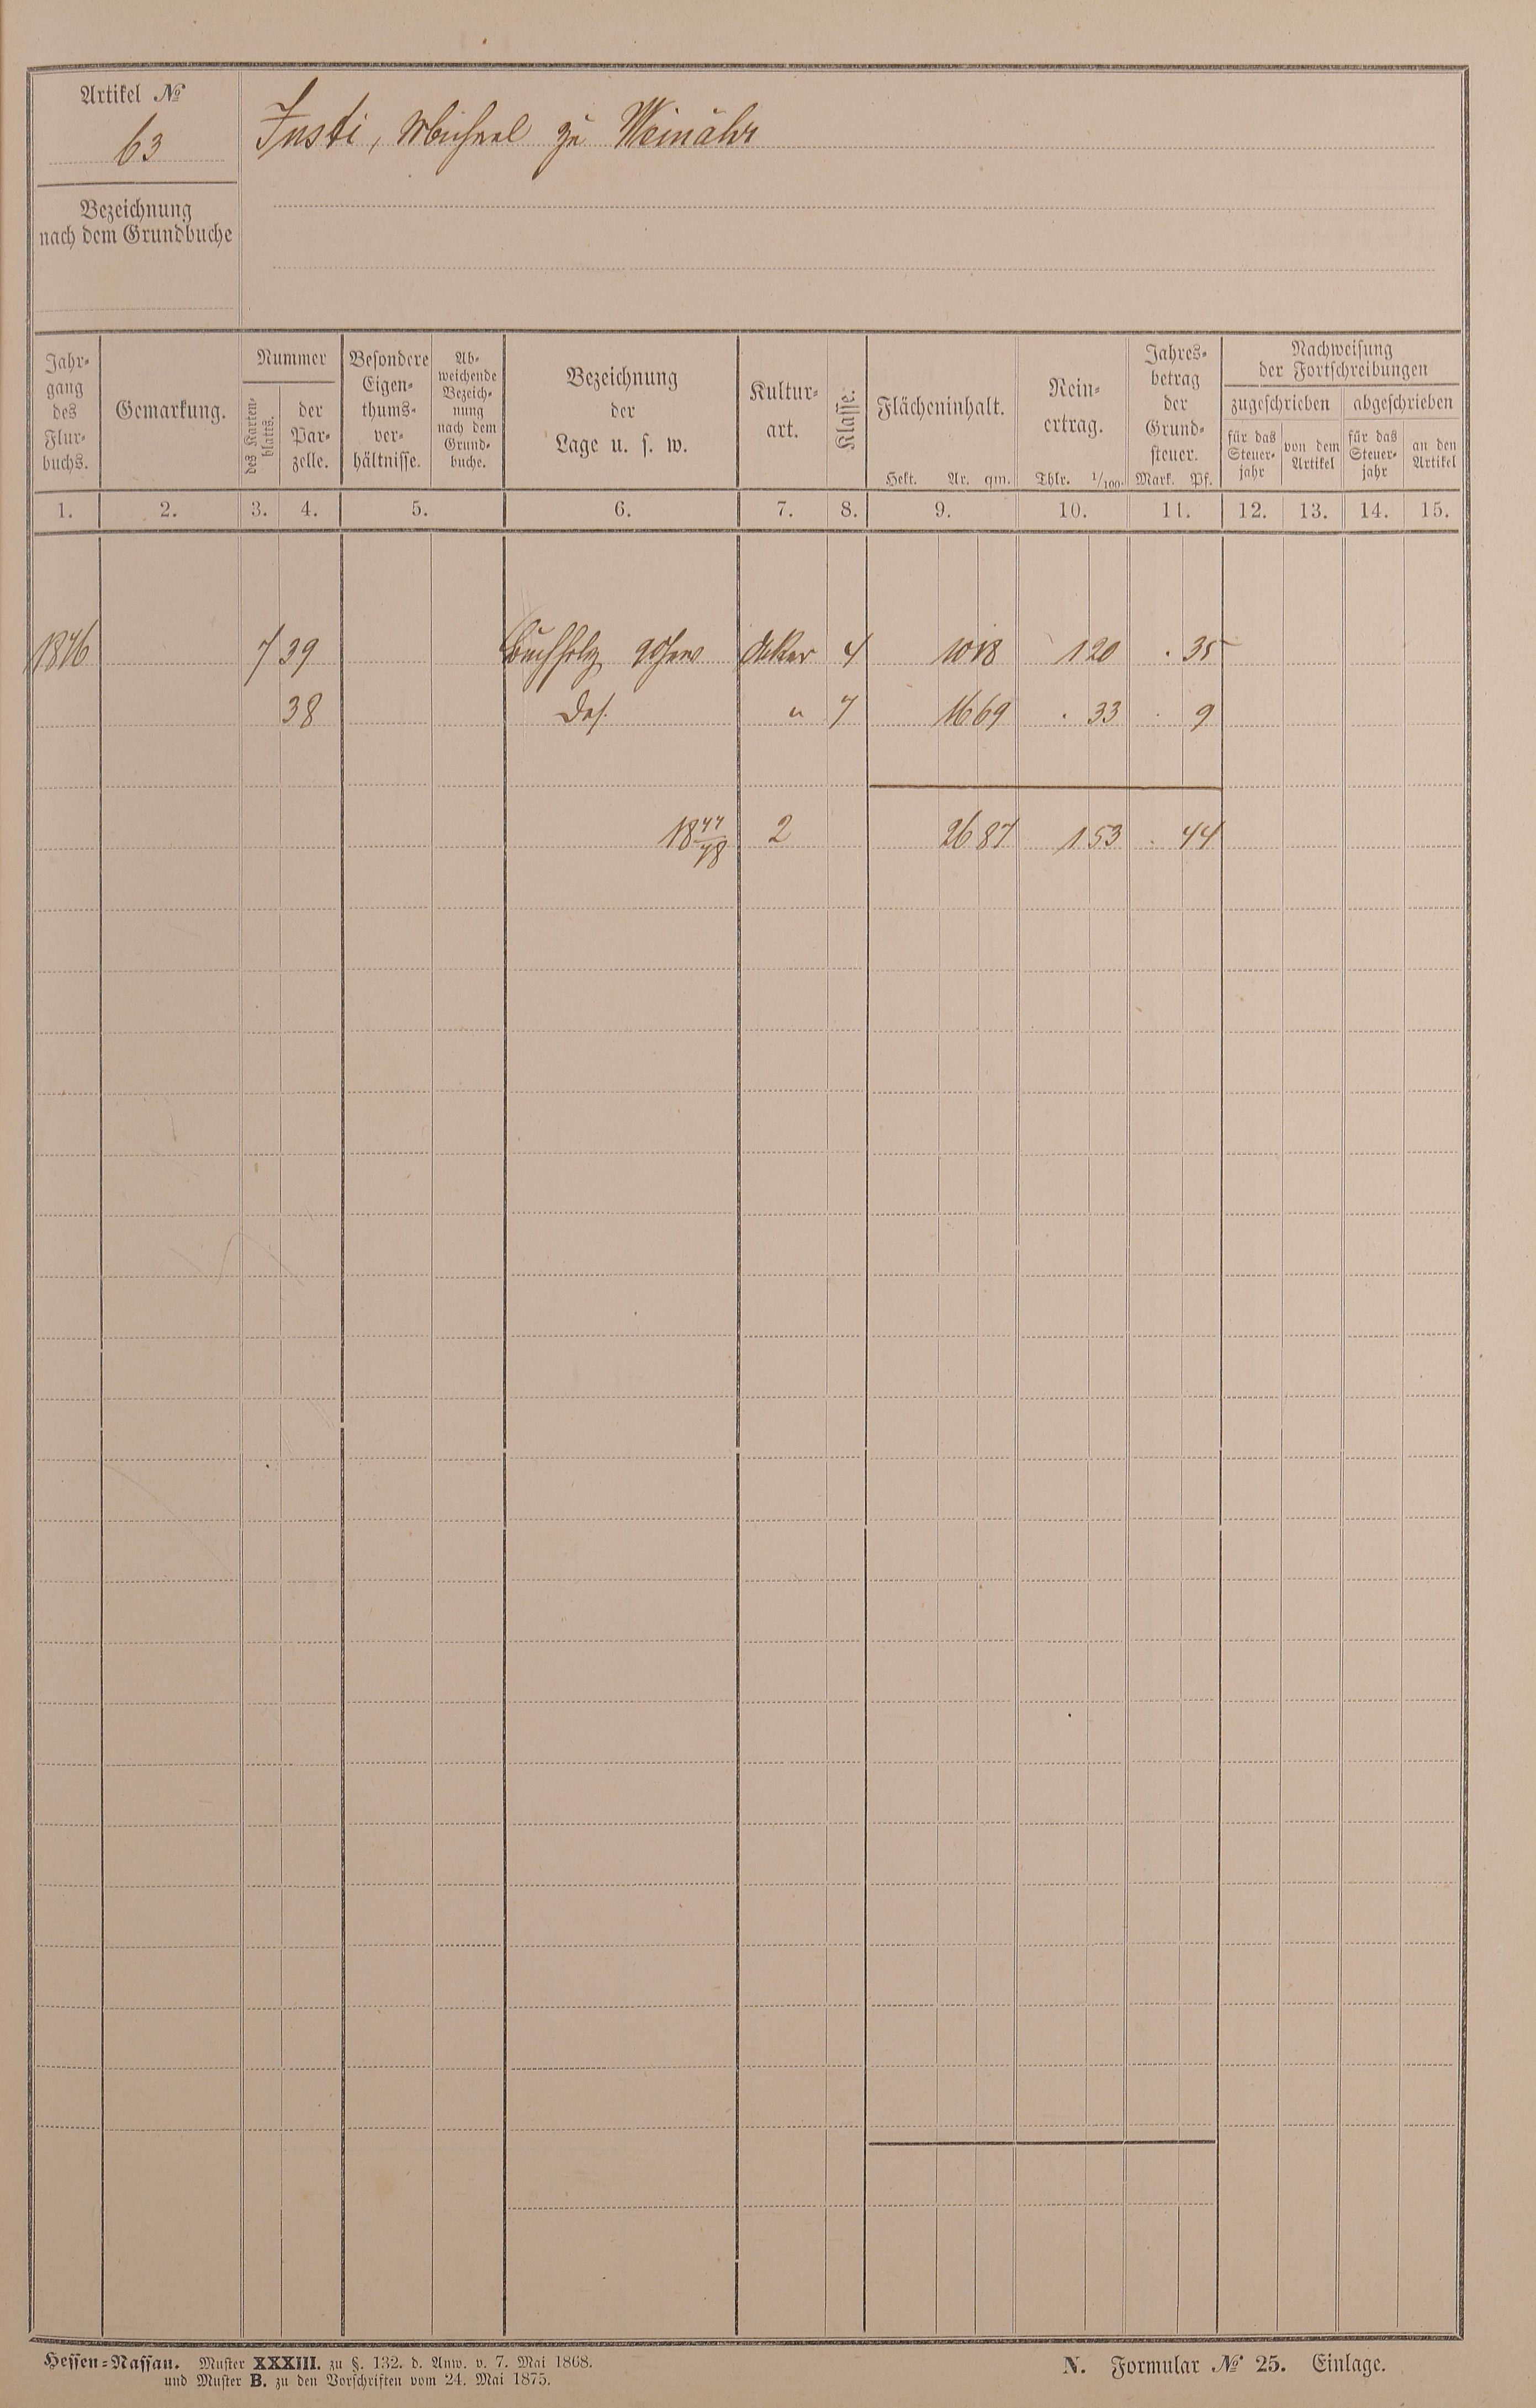 Artikel №
63
Justi, Michael zu Weinähr
Bezeichnung
nach dem Grundbuche
Jahr-
gang
des
Flur-
buchs.
Gemarkung.
Nummer
des Karten-
blatts.
der
Par-
zelle.
Besondere
Eigen-
thums-
ver-
hältnisse.
Ab-
weichende
Bezeich-
nung
nach dem
Grund-
buche.
Bezeichnung
der
Lage u. s. w.
Kultur-
art.
Klasse.
Flächeninhalt.
Hekt. Ar. qm.
Rein-
ertrag.
Thlr. 1/100.
Jahres-
betrag
der
Grund-
steuer.
Mark. Pf.
Nachweisung
der Fortschreibungen
zugeschrieben abgeschrieben
für das
Steuer-
jahr
von dem
Artikel
für das
Steuer-
jahr
an den
Artikel
1. 2. 3. 4. 5. 6. 7. 8. 9. 10. 11. 12. 13. 14. 15.
1876 7 39 Buchholz Acker 4 10 18 1 20 . 35
38 das. " 7 16 69 . 33 . 9
18 77/78 2 26 87 1 53 . 44
Hessen-Nassau. Muster XXXIII. zu §. 132. d. Anw. v. 7. Mai 1868.
und Muster B. zu den Vorschriften vom 24. Mai 1875.
N. Formular № 25. Einlage.